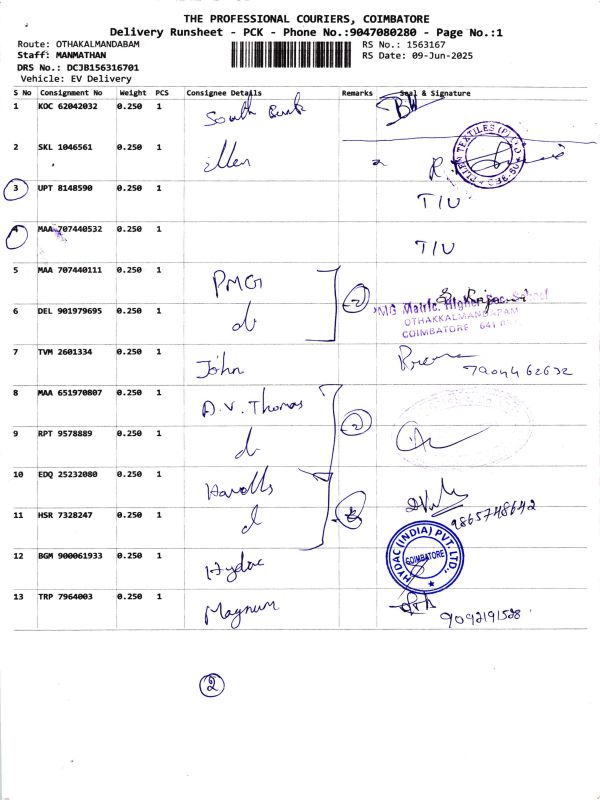 THE PROFESSIONAL COURIERS, COIMBATORE
Delivery Runsheet - PCK - Phone No.:9047080280 - Page No.:1
Route: OTHAKALMANDABAM RS No.: 1563167
Staff: MANMATHAN RS Date: 09-Jun-2025
DRS No.: DCJB156316701
Vehicle: EV Delivery
S No Consignment No Weight PCS Consignee Details Remarks Seal & Signature
1 KOC 62042032 0.250 1 South Bank
2 SKL 1046561 0.250 1 ellen
3 UPT 8148590 0.250 1 T/U
4 MAA 707440532 0.250 1 T/U
5 MAA 707440111 0.250 1 PMG 2
6 DEL 901979695 0.250 1 do PMG Matric. Higher Sec. School
OTHAKKALMANDAPAM
COIMBATORE 641
7 TVM 2601334 0.250 1 John 7904462632
8 MAA 651970807 0.250 1 A.V. Thomas 2
9 RPT 9578889 0.250 1 do
10 EDQ 25232080 0.250 1 Havells
11 HSR 7328247 0.250 1 d 9865748642
12 BGM 900061933 0.250 1 Hydac HYDAC (INDIA) PVT. LTD., COIMBATORE
13 TRP 7964003 0.250 1 Magnum 9092191528
2